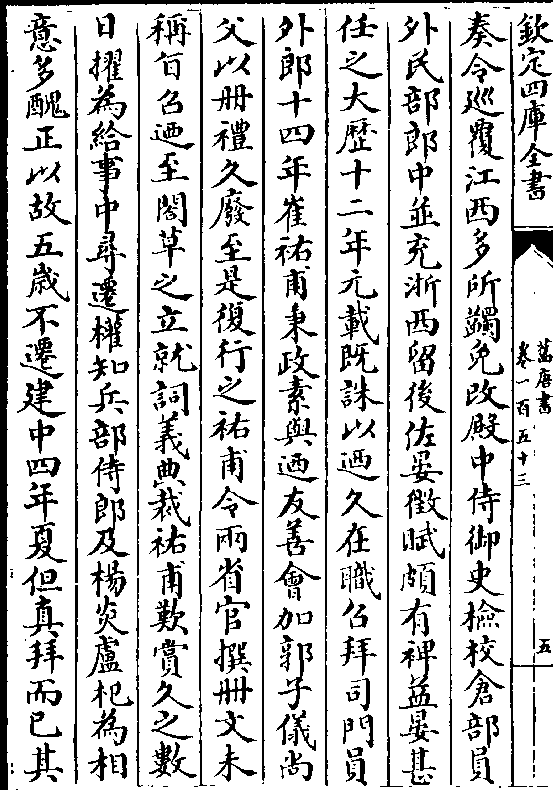 欽定四庫全書
舊唐書
卷一百五十三
五
奏令巡覆江西多所蠲免改殿中侍御史檢校倉部員
外民部郎中並充浙西留後佐晏徵賦頗有裨益晏甚
任之大歴十二年元載既誅以迺久在職召拜司門員
外郎十四年崔祐甫秉政素與迺友善會加郭子儀尚
父以册禮久廢至是復行之祐甫令兩省官撰册文未
稱旨召迺至閣草之立就詞義典裁祐甫歎賞久之數
日擢為給事中尋遷權知兵部侍郎及楊炎盧杞為相
意多醜正以故五歲不遷建中四年夏但真拜而已其